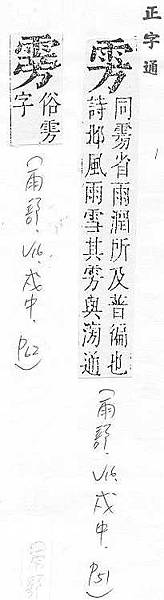 正字通
雱
同䨦省雨潤所及普徧也
詩邶風雨雪其雱與滂通
(雨部. V16. 戌中. P51)
俗雱
字
(雨部. V16. 戌中. P62)